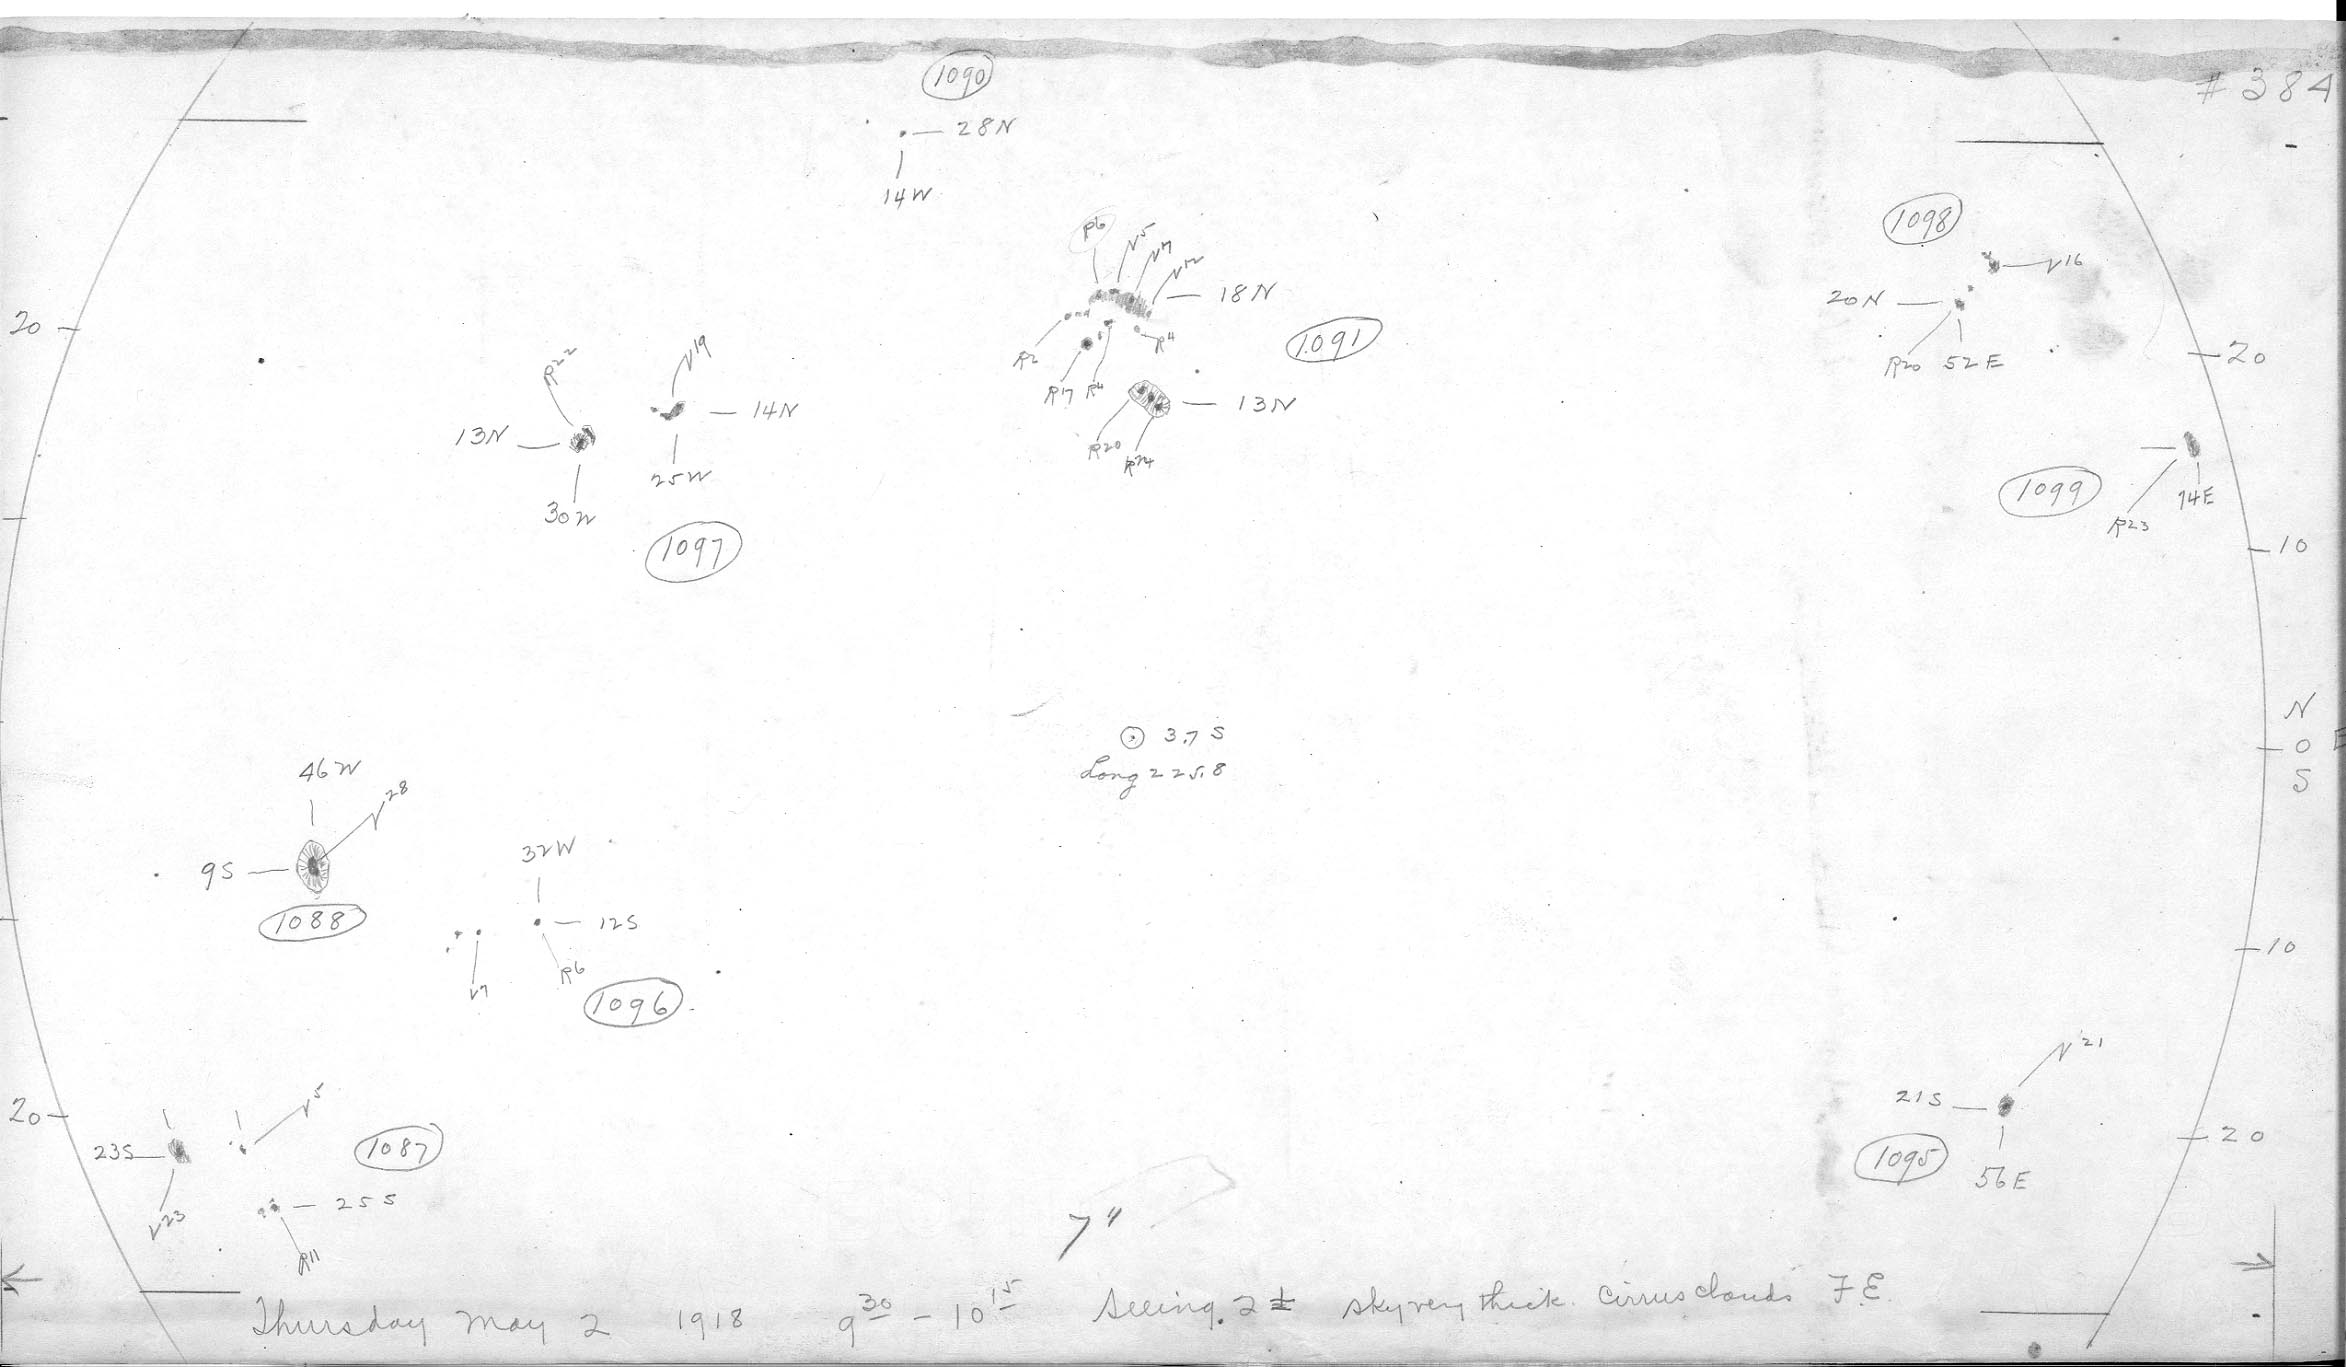 # 384
1090
28N
14W
1098
R6 V5 V7 V12
V16
18N
20N
20
1091
R2 R17 R4 R4
R20 52E
20
R22 V19
14N
13N
13N
25W
R20 R24
30W
1097
1099
74E
R23
10
N
0 E
S
⊙ 3.7 S
Long 225.8
46W
V28
9S
1088
32W
12S
V7 R6
1096
10
20
V5
23S
1087
V23
25S
R11
V21
21S
1095
56E
20
7"
Thursday May 2 1918 9 30 - 10 15 Seeing 2 ± sky very thick. Cirrus clouds F.E.